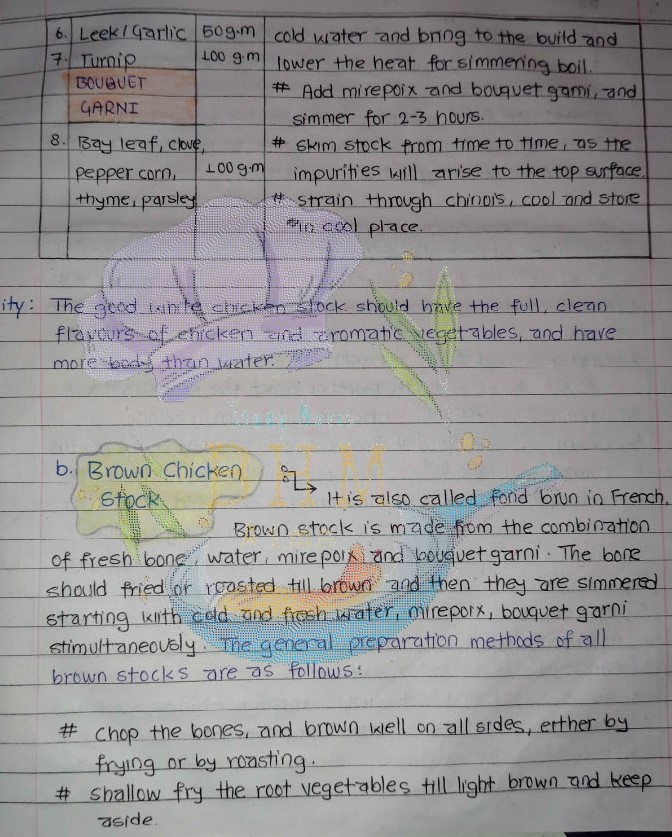 6. Leek/Garlic 50g.m cold water and bring to the build and
7. Turnip 100 g.m lower the heat for simmering boil.
BOUQUET # Add mirepoix and bouquet garni, and
GARNI simmer for 2-3 hours.
8. Bay leaf, clove, # skim stock from time to time, as the
pepper corn, 100g.m impurities will arise to the top surface.
thyme, parsley # strain through chinois, cool and store
in cool place.
ity: The good white chicken stock should have the full, clean
flavours of chicken and aromatic vegetables, and have
more body than water.
BHM
b. Brown Chicken
Stock
It is also called fond brun in French.
Brown stock is made from the combination
of fresh bone, water, mirepoix and bouquet garni. The bone
should fried or roasted till brown and then they are simmered
starting with cold and fresh water, mireporx, bouquet garni
stimultaneously. The general preparation methods of all
brown stocks are as follows:
# Chop the bones, and brown well on all sides, erther by
frying or by roasting.
# shallow fry the root vegetables till light brown and keep
aside.